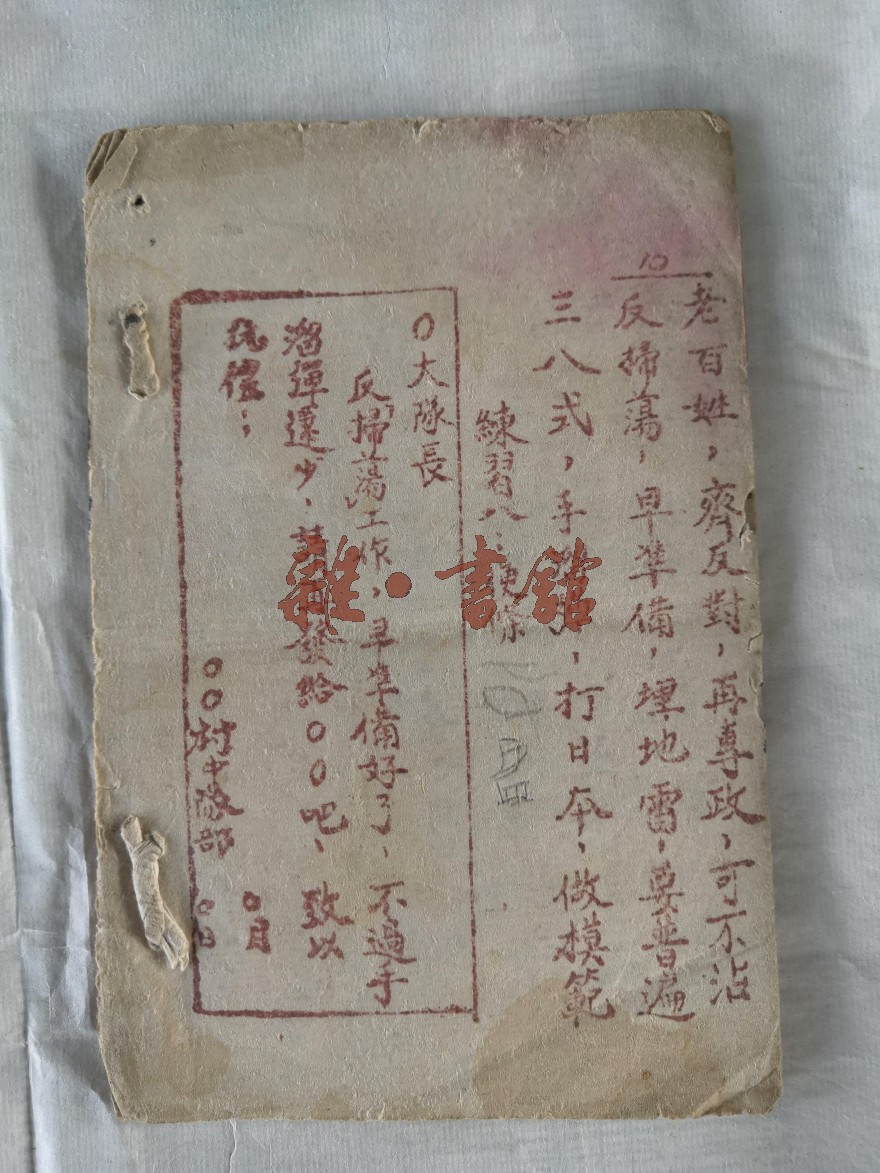 10
老百姓，齊反對，再專政，可不沾
反掃蕩，早準備，埋地雷，要普遍
三八式，手　　，打日本，做模範
練習八：便條
〇大隊長
反「掃蕩」工作，早準備好了、不過手
溜彈還少、　再發給〇〇吧、致以
抗禮；
〇〇村中隊部
〇月
〇日
雜·書館